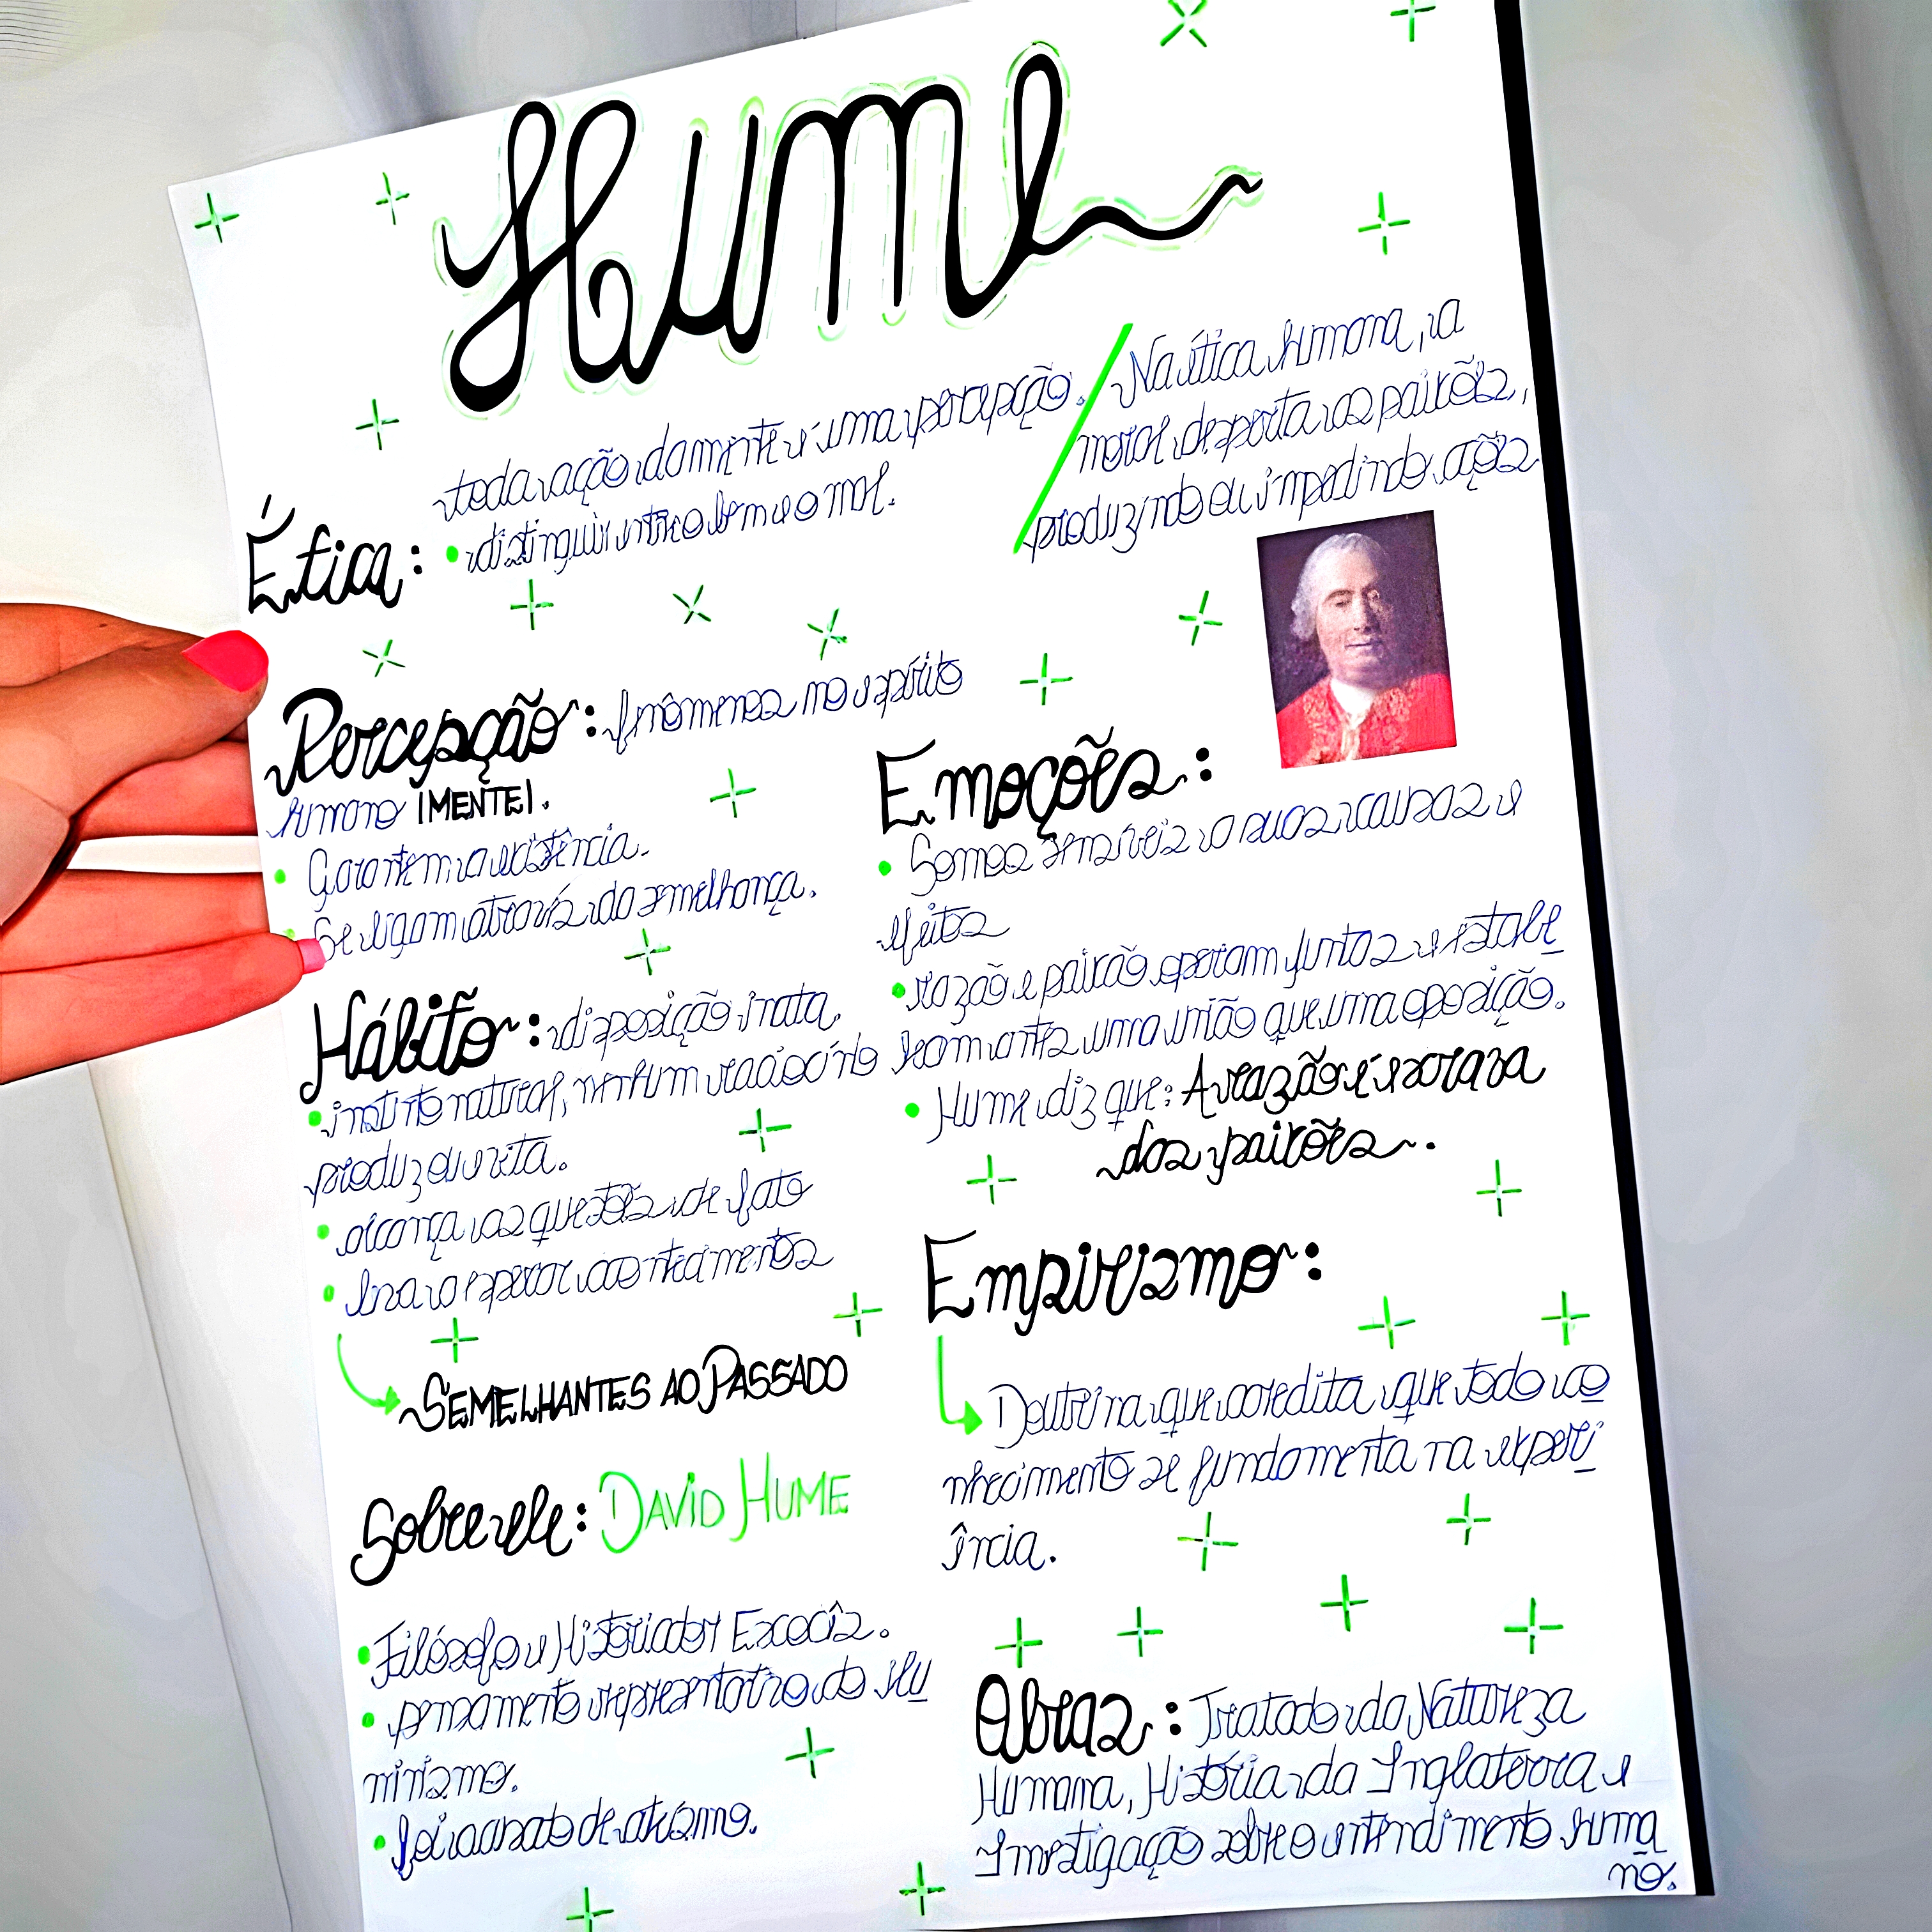 Hume
toda ação da mente é uma percepção.
Ética: • distinguir entre o bem e o mal.
Na ética humana, a
moral desperta as paixões,
produzindo ou impedindo ações
Percepção: fenômenos no espírito
humano (MENTE).
• Garantem a existência.
• Se ligam através da semelhança.
Hábito: disposição inata,
• instinto natural, nenhum raciocínio
produz ou evita.
• alcança as questões de fato
• leva a esperar acontecimentos
SEMELHANTES AO PASSADO
Sobre ele: DAVID HUME
• Filósofo e Historiador Escocês.
• pensamento representativo do ilu
minismo.
• foi acusado de ateísmo.
Emoções:
• Somos sensíveis a suas causas e
efeitos
• razão e paixão operam juntas e estabe
lecem antes uma união que uma oposição.
• Hume diz que: A razão é escrava
das paixões.
Empirismo:
Doutrina que acredita que todo co
nhecimento se fundamenta na experi
ência.
Obras: Tratado da Natureza
Humana, História da Inglaterra e
Investigação sobre o entendimento huma
no.